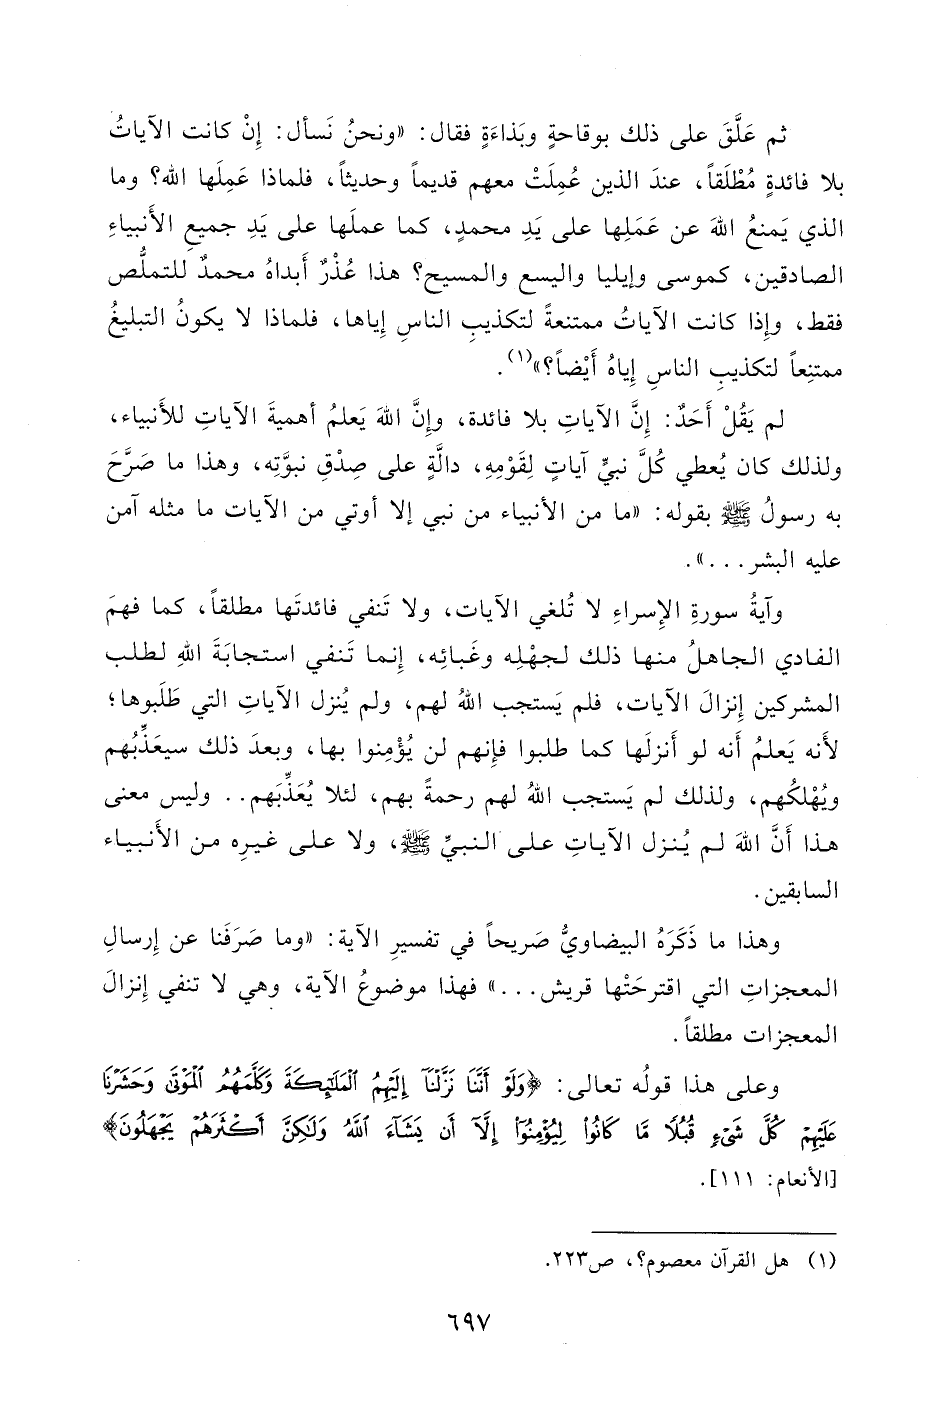 ثم عَلَّقَ على ذلك بوقاحةٍ وبَذاءَةٍ فقال: «ونحنُ نَسأل: إِنْ كانت الآياتُ
بلا فائدةٍ مُطْلَقاً، عندَ الذين عُمِلَتْ معهم قديماً وحديثاً، فلماذا عَمِلَها الله؟ وما
الذي يَمنعُ اللهَ عن عَمَلِها على يَدِ محمدٍ، كما عملَها على يَدِ جميعِ الأَنبياءِ
الصادقين، كموسى وإيليا واليسع والمسيح؟ هذا عُذْرٌ أَبداهُ محمدٌ للتملُّص
فقط، وإِذا كانت الآياتُ ممتنعةً لتكذيبِ الناسِ إياها، فلماذا لا يكونُ التبليغُ
ممتنِعاً لتكذيبِ الناسِ إِياهُ أَيْضاً؟»(١).
لم يَقُلْ أَحَدٌ: إِنَّ الآياتِ بلا فائدة، وإِنَّ اللهَ يَعلمُ أهميةَ الآياتِ للأنبياء،
ولذلك كان يُعطي كُلَّ نبيٍّ آياتٍ لِقَوْمِهِ، دالَّةٍ على صِدْقِ نبوَّتِه، وهذا ما صَرَّحَ
به رسولُ ﷺ بقوله: «ما من الأنبياء من نبي إلا أوتي من الآيات ما مثله آمن
عليه البشر...».
وآيةُ سورةِ الإِسراءِ لا تُلغي الآيات، ولا تَنفي فائدتَها مطلقاً، كما فهمَ
الفادي الجاهلُ منها ذلك لجهْلِه وغَبائِه، إِنما تَنفي استجابَةَ اللهِ لطلب
المشركين إِنزالَ الآيات، فلم يَستجب اللهُ لهم، ولم يُنزل الآياتِ التي طَلَبوها؛
لأنه يَعلمُ أنه لو أَنزلَها كما طلبوا فإنهم لن يُؤْمِنوا بها، وبعدَ ذلك سيعَذِّبُهم
ويُهْلكُهم، ولذلك لم يَستجب اللهُ لهم رحمةً بهم، لئلا يُعَذِّبَهم.. وليس معنى
هذا أَنَّ اللهَ لم يُنزل الآياتِ على النبيِّ ﷺ، ولا على غيرِه من الأَنبياء
السابقين.
وهذا ما ذَكَرَهُ البيضاويُّ صَريحاً في تفسيرِ الآية: «وما صَرَفَنا عن إِرسالِ
المعجزاتِ التي اقترحَتْها قريش...» فهذا موضوعُ الآية، وهي لا تنفي إِنزالَ
المعجزات مطلقاً.
وعلى هذا قولُه تعالى: ﴿وَلَوْ أَنَّنَا نَزَّلْنَآ إِلَيْهِمُ ٱلْمَلَٰٓئِكَةَ وَكَلَّمَهُمُ ٱلْمَوْتَىٰ وَحَشَرْنَا
عَلَيْهِمْ كُلَّ شَىْءٍ قُبُلًا مَّا كَانُوا۟ لِيُؤْمِنُوٓا۟ إِلَّآ أَن يَشَآءَ ٱللَّهُ وَلَٰكِنَّ أَكْثَرَهُمْ يَجْهَلُونَ﴾
[الأنعام: ١١١].
(١) هل القرآن معصوم؟، ص٢٢٣.
٦٩٧